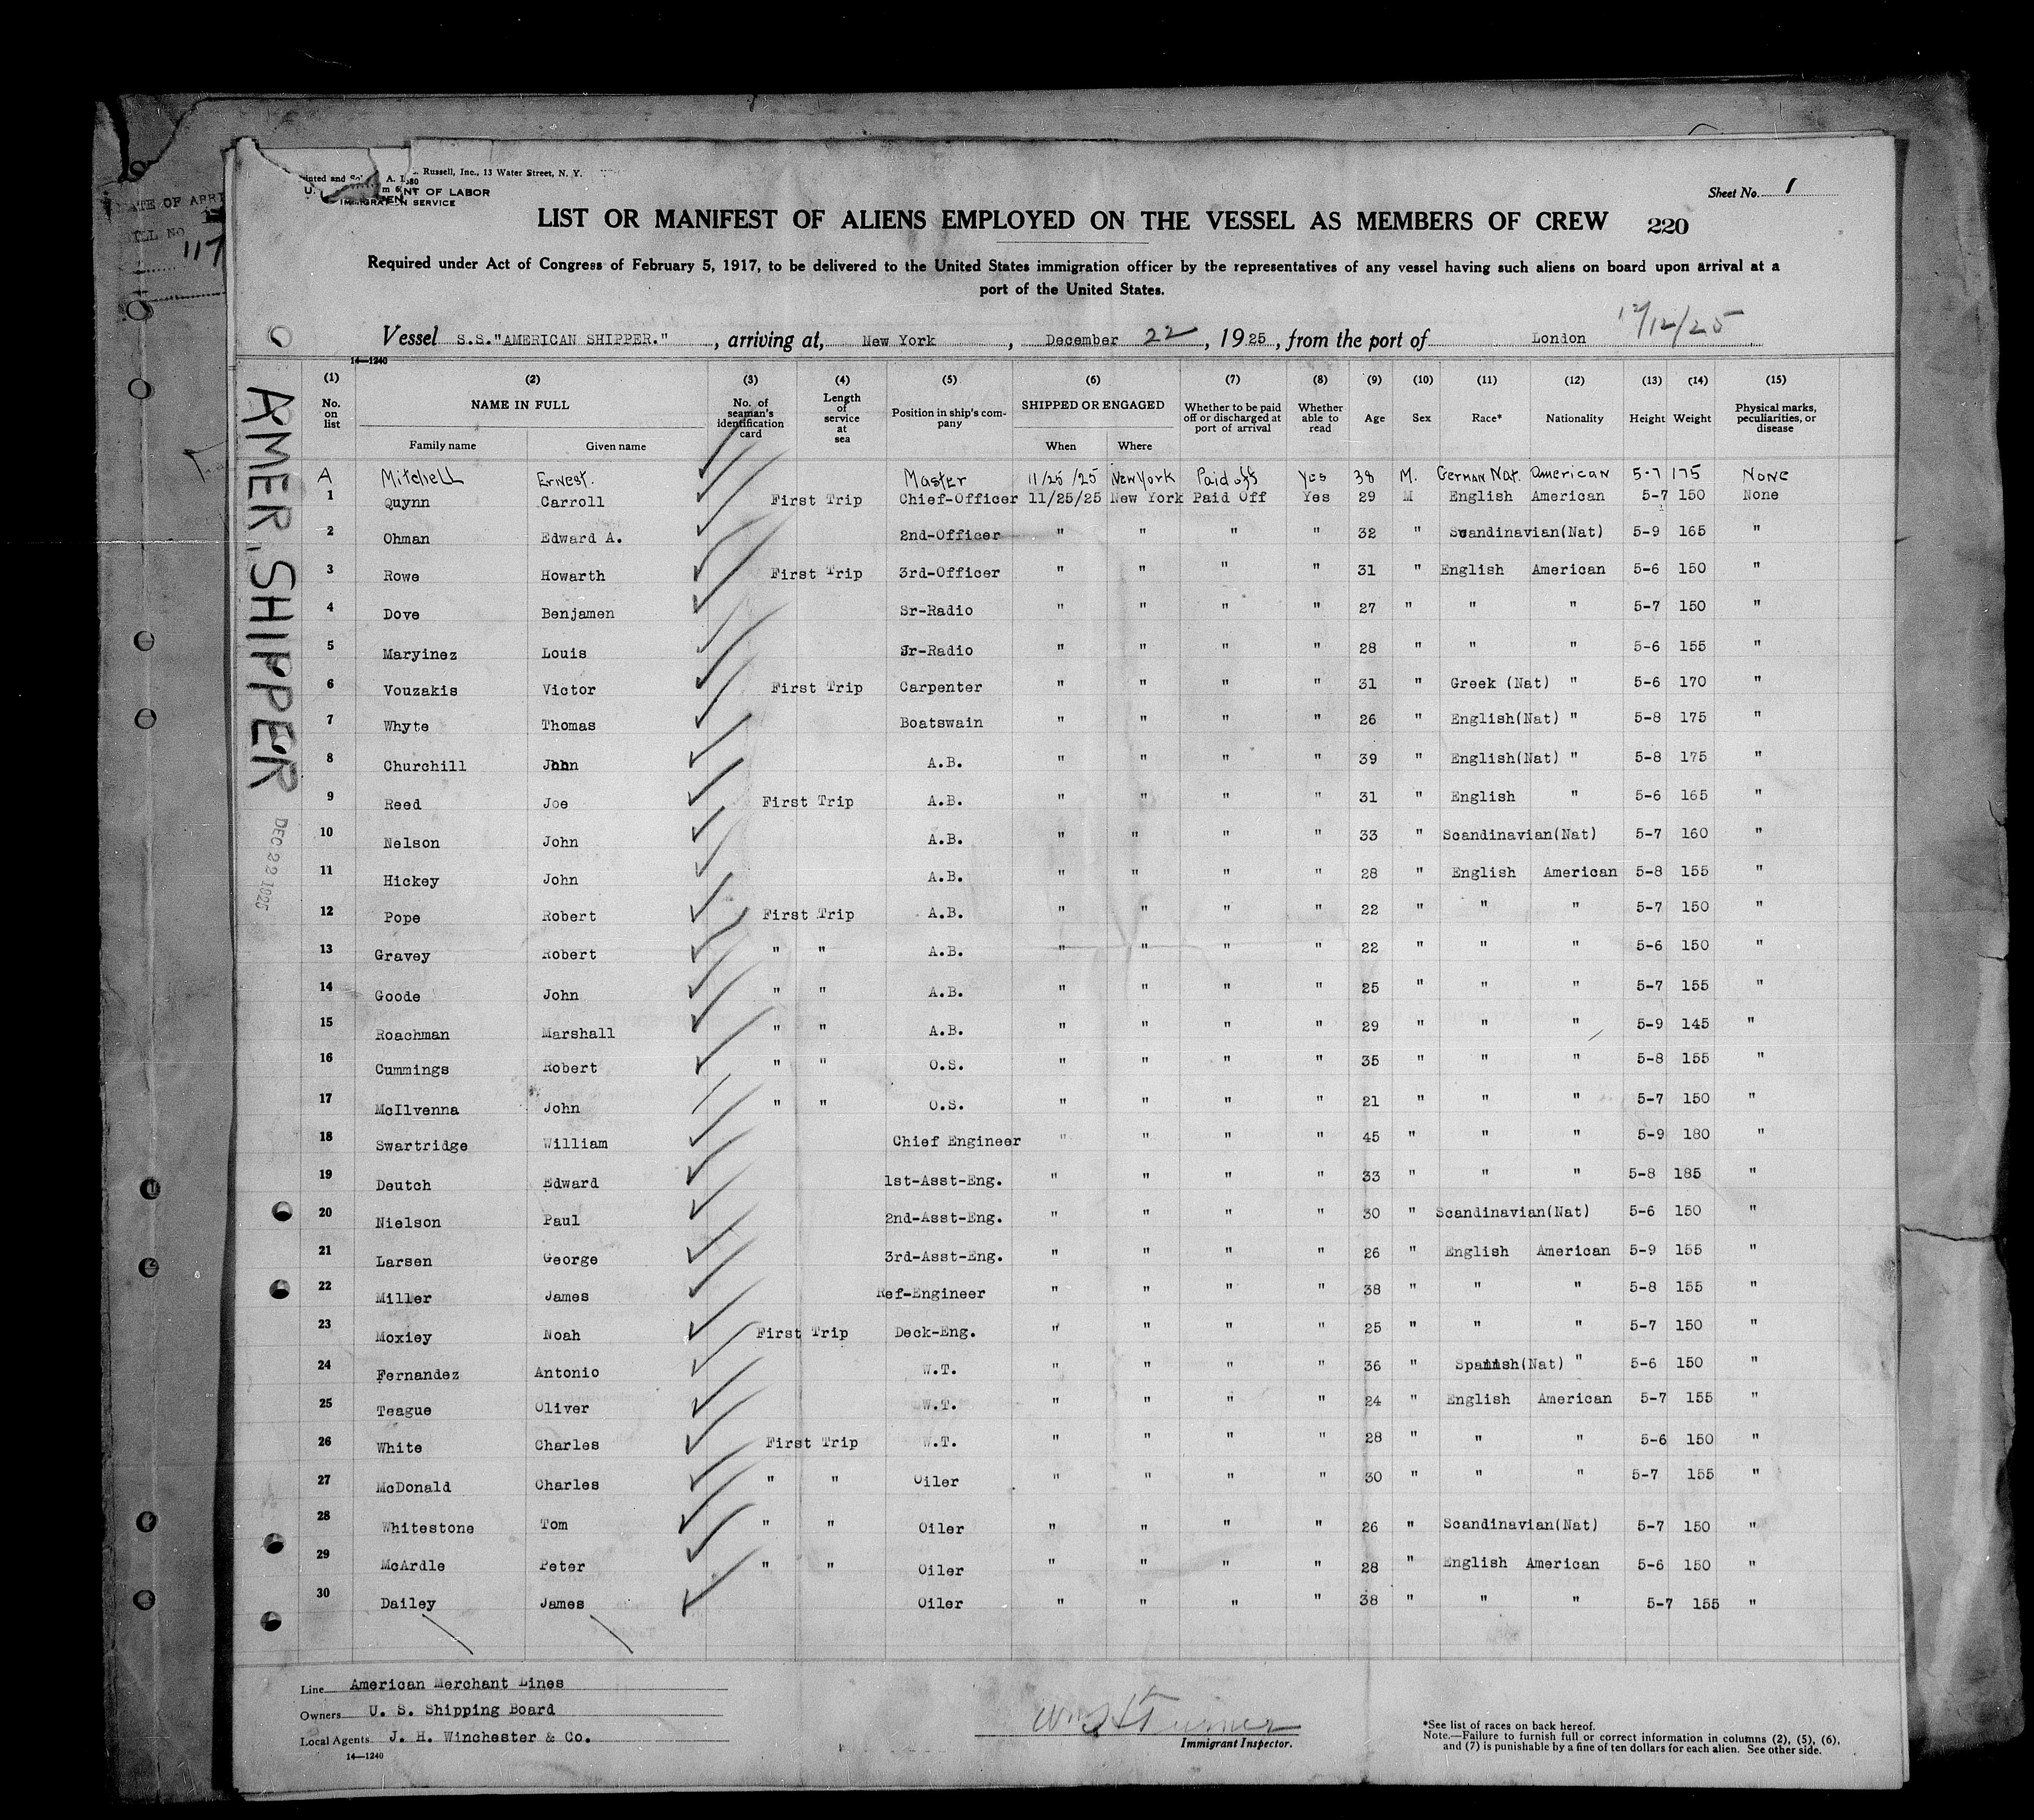 Russell, Inc., 13 Water Street, N. Y.
NT OF LABOR
IMMIGRATION SERVICE
Sheet No. 1
LIST OR MANIFEST OF ALIENS EMPLOYED ON THE VESSEL AS MEMBERS OF CREW 220
Required under Act of Congress of February 5, 1917, to be delivered to the United States immigration officer by the representatives of any vessel having such aliens on board upon arrival at a
port of the United States.
12/12/25
Vessel S.S."AMERICAN SHIPPER." , arriving at, New York , December 22 , 1925 , from the port of London
14—1240
(1) (2) (3) (4) (5) (6) (7) (8) (9) (10) (11) (12) (13) (14) (15)
No. on list NAME IN FULL Family name Given name No. of seaman's identification card Length of service at sea Position in ship's company SHIPPED OR ENGAGED When Where Whether to be paid off or discharged at port of arrival Whether able to read Age Sex Race* Nationality Height Weight Physical marks, peculiarities, or disease
A Mitchell Ernest. Master 11/25/25 New York Paid off Yes 38 M. German Nat. American 5-7 175 None
1 Quynn Carroll First Trip Chief-Officer 11/25/25 New York Paid Off Yes 29 M English American 5-7 150 None
2 Ohman Edward A. 2nd-Officer " " " " 32 " Scandinavian(Nat) 5-9 165 "
3 Rowe Howarth First Trip 3rd-Officer " " " " 31 " English American 5-6 150 "
4 Dove Benjamen Sr-Radio " " " " 27 " " " 5-7 150 "
5 Maryinez Louis Jr-Radio " " " " 28 " " " 5-6 155 "
6 Vouzakis Victor First Trip Carpenter " " " " 31 " Greek (Nat) " 5-6 170 "
7 Whyte Thomas Boatswain " " " " 26 " English(Nat) " 5-8 175 "
8 Churchill John A.B. " " " " 39 " English(Nat) " 5-8 175 "
9 Reed Joe First Trip A.B. " " " " 31 " English " 5-6 165 "
10 Nelson John A.B. " " " " 33 " Scandinavian(Nat) 5-7 160 "
11 Hickey John A.B. " " " " 28 " English American 5-8 155 "
12 Pope Robert First Trip A.B. " " " " 22 " " " 5-7 150 "
13 Gravey Robert " " A.B. " " " " 22 " " " 5-6 150 "
14 Goode John " " A.B. " " " " 25 " " " 5-7 155 "
15 Roachman Marshall " " A.B. " " " " 29 " " " 5-9 145 "
16 Cummings Robert " " O.S. " " " " 35 " " " 5-8 155 "
17 McIlvenna John " " O.S. " " " " 21 " " " 5-7 150 "
18 Swartridge William Chief Engineer " " " " 45 " " " 5-9 180 "
19 Deutch Edward 1st-Asst-Eng. " " " " 33 " " " 5-8 185 "
20 Nielson Paul 2nd-Asst-Eng. " " " " 30 " Scandinavian(Nat) 5-6 150 "
21 Larsen George 3rd-Asst-Eng. " " " " 26 " English American 5-9 155 "
22 Miller James Ref-Engineer " " " " 38 " " " 5-8 155 "
23 Moxley Noah First Trip Deck-Eng. " " " " 25 " " " 5-7 150 "
24 Fernandez Antonio W.T. " " " " 36 " Spanish(Nat) " 5-6 150 "
25 Teague Oliver W.T. " " " " 24 " English American 5-7 155 "
26 White Charles First Trip W.T. " " " " 28 " " " 5-6 150 "
27 McDonald Charles " " Oiler " " " " 30 " " " 5-7 155 "
28 Whitestone Tom " " Oiler " " " " 26 " Scandinavian(Nat) 5-7 150 "
29 McArdle Peter " " Oiler " " " " 28 " English American 5-6 150 "
30 Dailey James Oiler " " " " 38 " " " 5-7 155 "
AMER. SHIPPER
DEC 22 1925
Line American Merchant Lines
Owners U. S. Shipping Board
Local Agents J. H. Winchester & Co.
14—1240
Turner
Immigrant Inspector.
*See list of races on back hereof.
Note.—Failure to furnish full or correct information in columns (2), (5), (6),
and (7) is punishable by a fine of ten dollars for each alien. See other side.
117